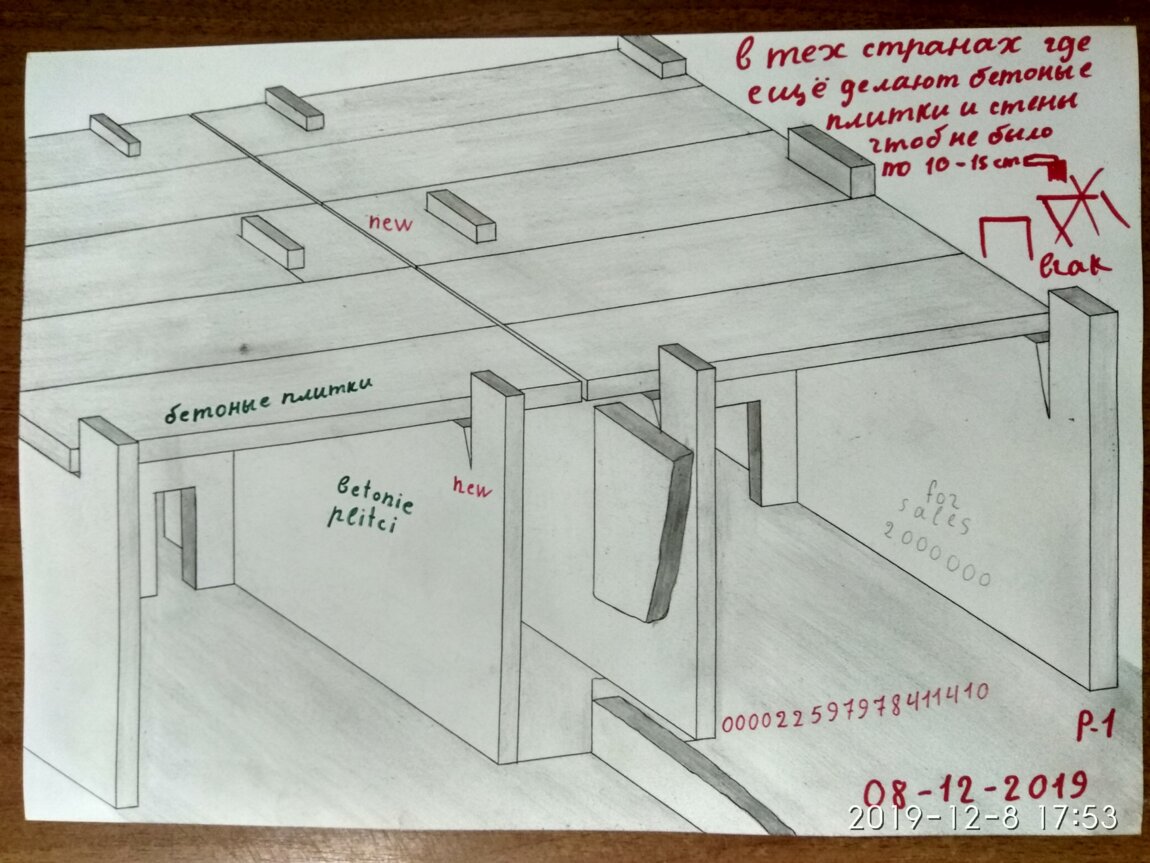 в тех странах где
ещё делают бетоные
плитки и стены
чтоб не было
по 10-15cm
new
бетоные плитки
betonie
plitci
new
for
sales
2000000
000022597978411410
P-1
08-12-2019
2019-12-8 17:53